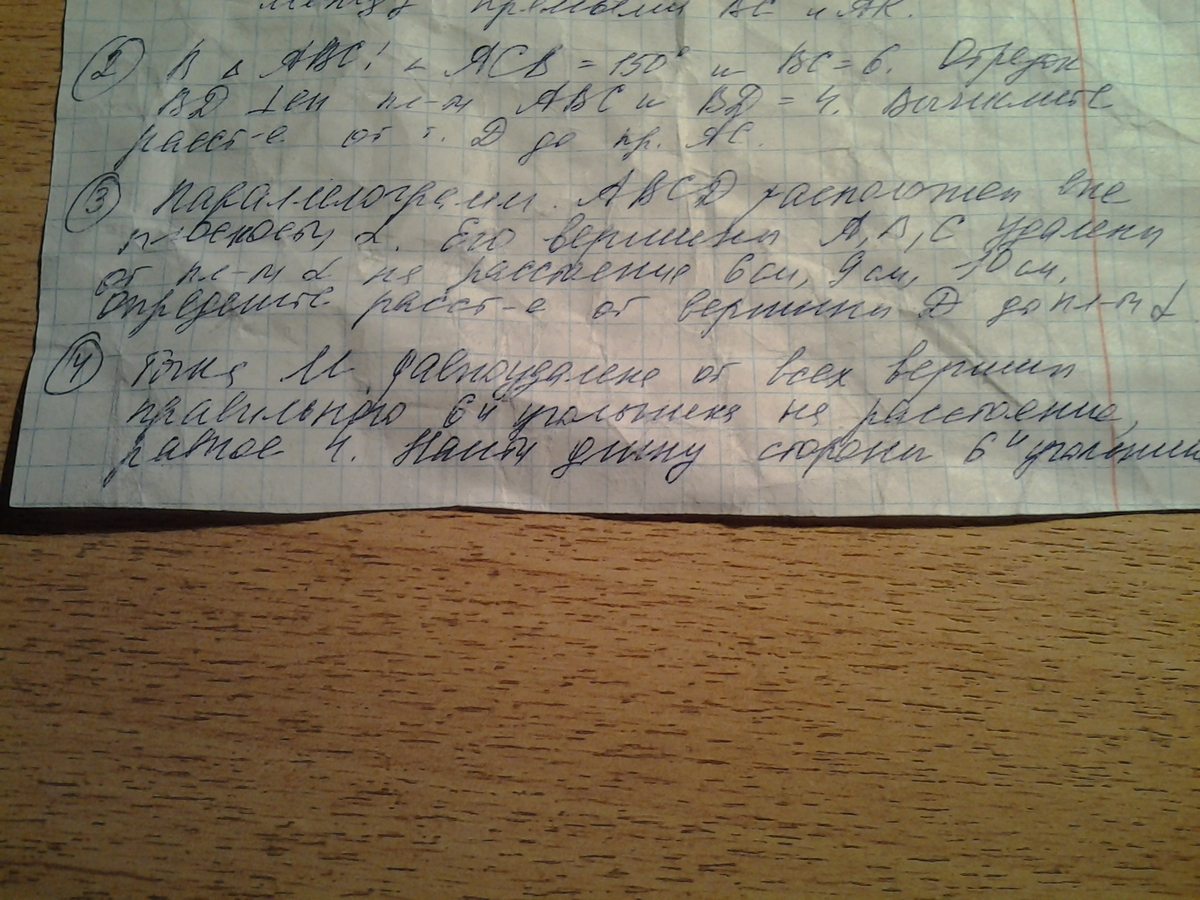 между прямыми ВС и АК.
② В △ АВС: ∠ АСВ = 150° и ВС = 6. Отрезок
ВД ⊥ен пл-ти АВС и ВД = 4. Вычислите
расст-е от т. Д до пр. АС.
③ Параллелограмм АВСД расположен вне
плоскости α. Его вершины А, В, С удалены
от пл-ти α на расстояние 6 см, 9 см, 10 см.
Определите расст-е от вершины Д до пл-ти α
④ Точка М равноудалена от всех вершин
правильного 6и угольника на расстояние,
равное 4. Найти длину стороны 6и угольника